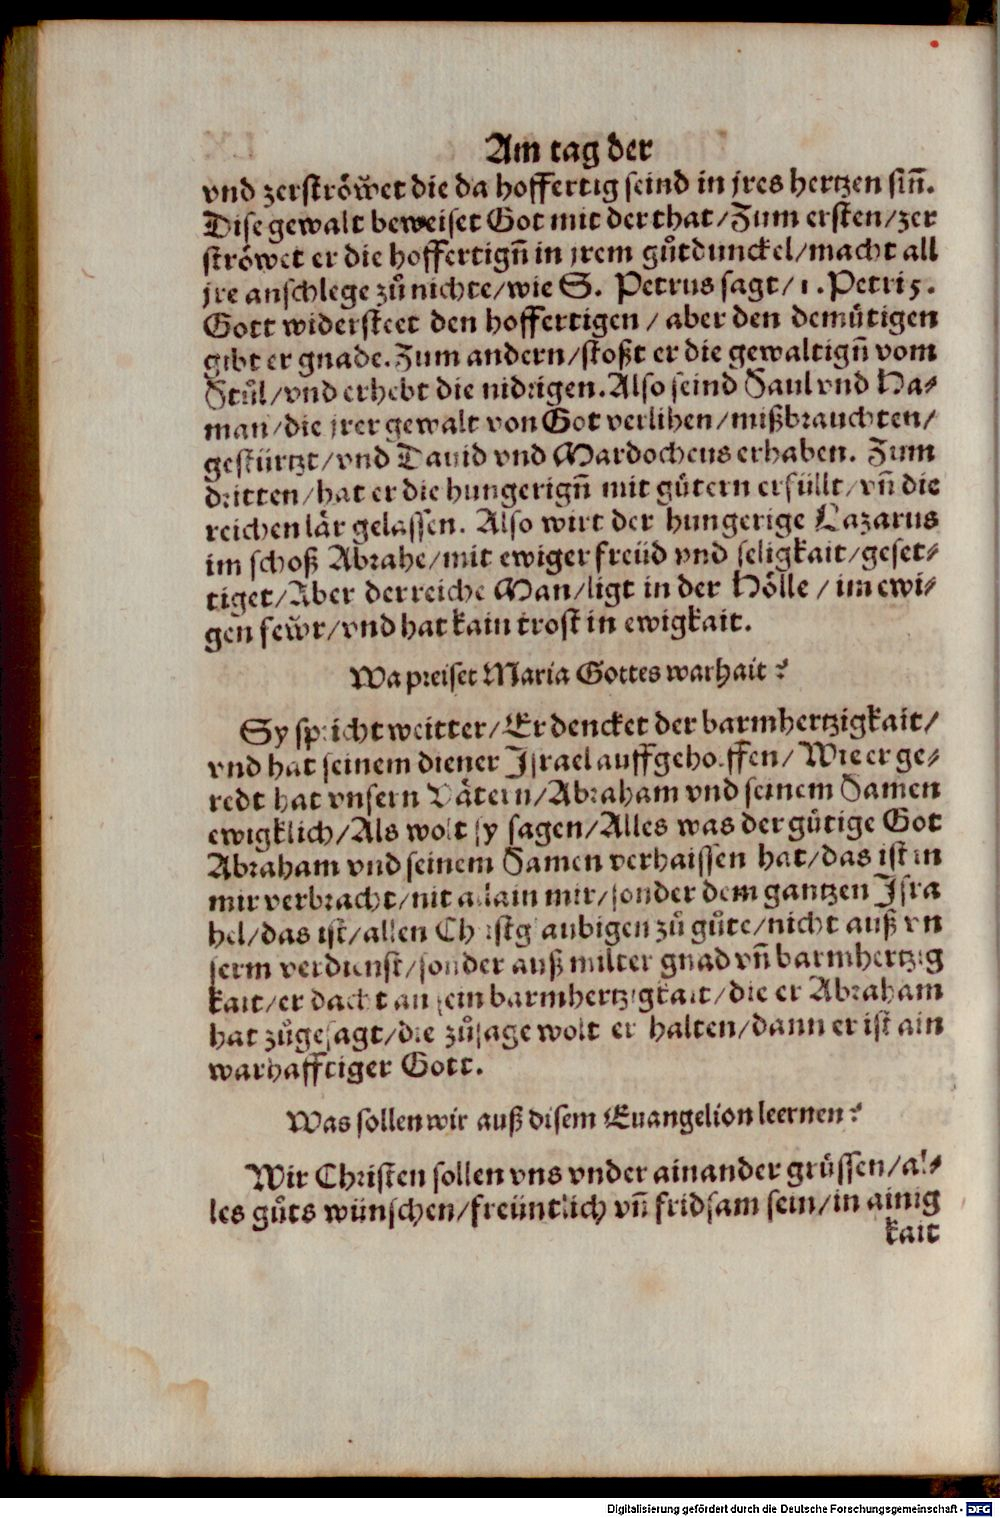 Am tag der
vnd zerströwet die da hoffertig seind in jres hertzen sin̄.
Dise gewalt beweiset Got mit der that/Zum ersten/zer
ströwet er die hoffertign̄ in jrem gůtdunckel/macht all
jre anschlege zů nichte/wie S. Petrus sagt/1. Petri 5.
Gott widersteet den hoffertigen/aber den demütigen
gibt er gnade. Zum andern/stoßt er die gewaltign̄ vom
Stůl/vnd erhebt die nidrigen. Also seind Saul vnd Ha-
man/die jrer gewalt von Got verlihen/mißbrauchten/
gestürtzt/vnd Dauid vnd Mardocheus erhaben. Zum
dritten/hat er die hungerign̄ mit gütern erfüllt/vn̄ die
reichen lär gelassen. Also wirt der hungerige Lazarus
im schoß Abrahe/mit ewiger freüd vnd seligkait/geset-
tiget/Aber der reiche Man/ligt in der Hölle/im ewi-
gen fewr/vnd hat kain trost in ewigkait.
Wa preiset Maria Gottes warhait?
Sy spricht weitter/Er dencket der barmhertzigkait/
vnd hat seinem diener Israel auffgeholffen/Wie er ge-
redt hat vnsern Vätern/Abraham vnd seinem Samen
ewigklich/Als wolt sy sagen/Alles was der gütige Got
Abraham vnd seinem Samen verhaissen hat/das ist in
mir verbracht/nit allain mir/sonder dem gantzen Isra
hel/das ist/allen Christglaubigen zů gůte/nicht auß vn
serm verdienst/sonder auß milter gnad vn̄ barmhertzig
kait/er dacht an sein barmhertzigkait/die er Abraham
hat zůgesagt/die zůsage wolt er halten/dann er ist ain
warhafftiger Gott.
Was sollen wir auß disem Euangelion leernen?
Wir Christen sollen vns vnder ainander grüssen/al-
les gůts wünschen/freüntlich vn̄ fridsam sein/in ainig
kait
Digitalisierung gefördert durch die Deutsche Forschungsgemeinschaft - DFG